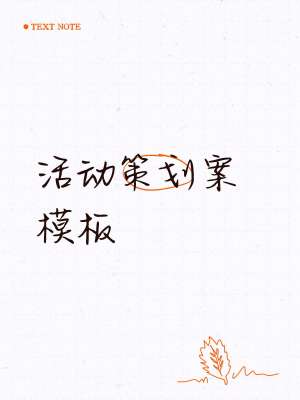 TEXT NOTE
活动策划案
模板